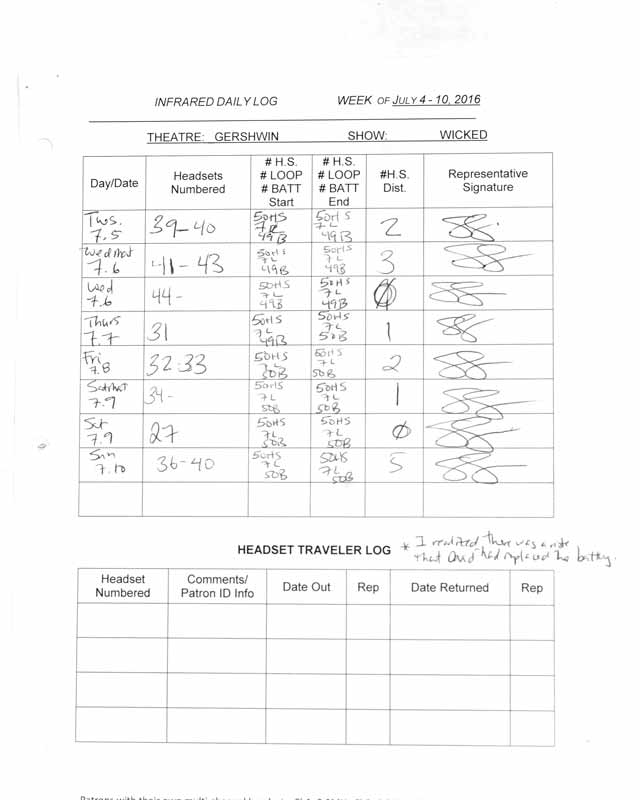 INFRARED DAILY LOG WEEK OF JULY 4 - 10, 2016
THEATRE: GERSHWIN SHOW: WICKED
Day/Date Headsets Numbered # H.S. # LOOP # BATT Start # H.S. # LOOP # BATT End #H.S. Dist. Representative Signature
Tws. 7.5 39-40 50HS 7L 49B 50HS 7L 49B 2
Wed Mat 7.6 41-43 50HS 7L 49B 50HS 7L 49B 3
Wed 7.6 44- 50HS 7L 49B 50HS 7L 49B Ø
Thurs 7.7 31 50HS 7L 49B 50HS 7L 50B 1
Fri 7.8 32-33 50HS 7L 50B 50HS 7L 50B 2
Sat Mat 7.9 34- 50HS 7L 50B 50HS 7L 50B 1
Sat 7.9 27 50HS 7L 50B 50HS 7L 50B Ø
Sun 7.10 36-40 50HS 7L 50B 50HS 7L 50B 5
HEADSET TRAVELER LOG * I realized there was a note
that had replaced the battery.
Headset Numbered Comments/ Patron ID Info Date Out Rep Date Returned Rep